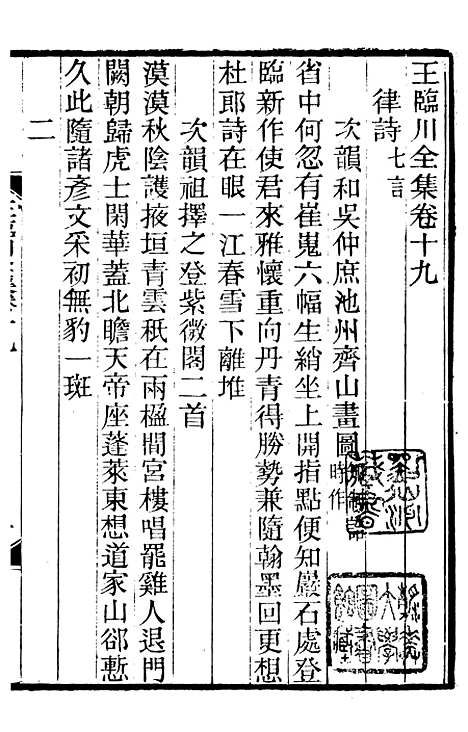 王臨川全集卷十九
律詩七言
次韻和吳仲庶池州齊山畫圖時作
省中何忽有崔嵬六幅生綃坐上開指點便知巖石處登
臨新作使君來雅懷重向丹青得勝勢兼隨翰墨回更想
杜郎詩在眼一江春雪下離堆
次韻祖擇之登紫微閣二首
漠漠秋陰護掖垣青雲秖在兩楹間宮樓唱罷雞人退門
闕朝歸虎士閑華蓋北瞻天帝座蓬萊東想道家山郤慙
久此隨諸彥文采初無豹一斑
二